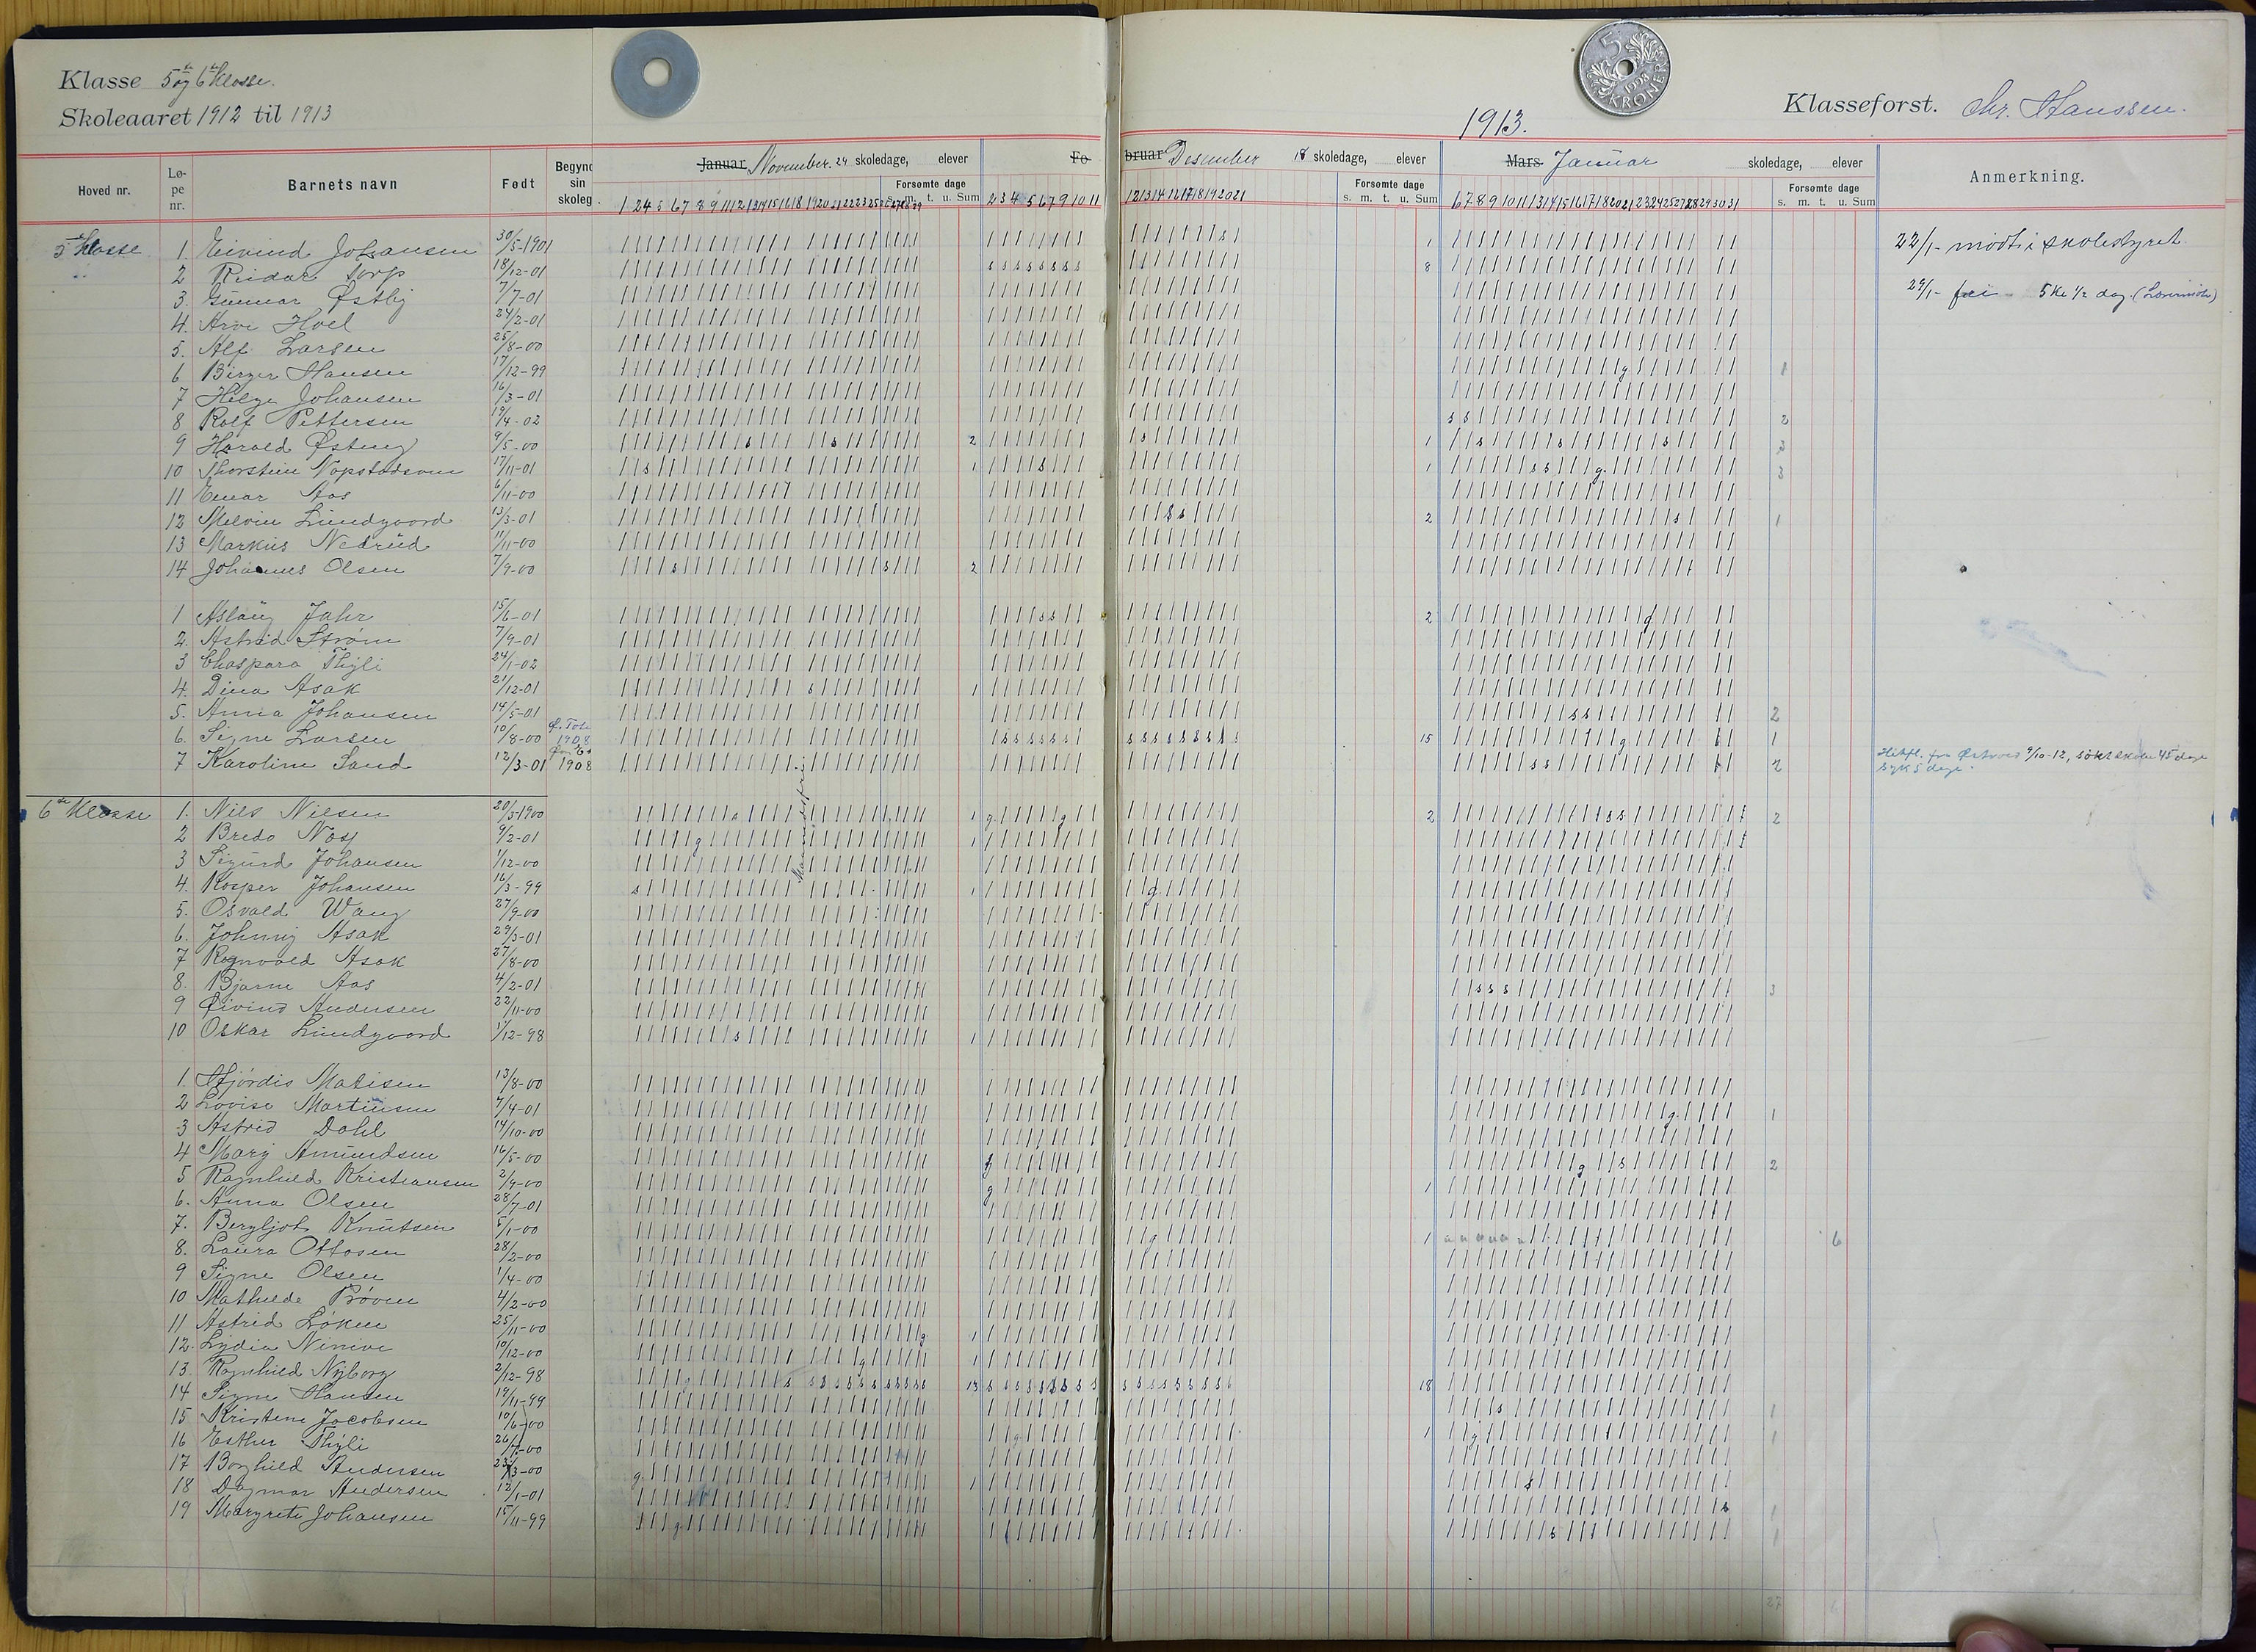 Klasse 5te og 6te Klasse.
Skoleaaret 1912 til 1913
5 1993 KRONER
1913.
Klasseforst. Chr. Hanssen.
Hoved nr. Løpe nr. Barnets navn Født Begynd sin skoleg.
Januar November. 24 skoledage, elever
Forsømte dage
s. m. t. u. Sum
Fe
bruar Desember 18 skoledage, elever
Forsømte dage
s. m. t. u. Sum
Mars Januar skoledage, elever
Forsømte dage
s. m. t. u. Sum
Anmerkning.
5te Klasse 1. Eivind Johansen 30/5-1901 1 22/1- møte i skolestyret
2 Reidar Torp 18/12-01 8
3. Gunnar Østby 7/7-01 29/1- fri 5 Kl 1/2 dag.
4. Arve Hoel 24/2-01
5. Alf Larsen 25/8-00
6 Birger Hansen 17/12-99 1
7 Helge Johansen 16/3-01
8 Rolf Pettersen 19/4-02 2
9 Harald Østeng 9/5-00 2 1 3
10 Thorstein 17/11-01 1 1 3
11 Einar Aas 6/11-00
12 Melvin Lundgaard 13/3-01 2 1
13 Markus Nedrud 11/11-00
14 Johannes Olsen 7/9-00 2
1 Aslaug Jahr 15/6-01 2
2. Astrid Strøm 7/9-01
3 Chaspara Thyli 24/1-02
4. Dina Asak 21/12-01 1
5. Anna Johansen 14/5-01 2
6. Signe Larsen 10/8-00 1908 15 1
7 Karoline Sand 12/3-01 1908 2 9/10-12, søkt skole 45 dage
syk 5 dage.
6te Klasse 1. Nils Nilsen 20/5-1900 1 2 2
2 Bredo Næss 9/2-01 1
3 Sigurd Johansen 1/12-00
4. Kasper Johansen 16/3-99 1
5. Osvald Wang 27/9-00
6. Johnny Asak 29/3-01
7 Ragnvald Asak 27/8-00
8. Bjarne Aas 4/2-01 3
9 Øivind Andersen 22/11-00
10 Oskar Lundgaard 1/12-98 1
1. Hjørdis Matisen 13/8-00
2 Lovise Martinsen 7/4-01 1
3 Astrid Dahl 14/10-00
4 Mary Amundsen 16/5-00 2
5 Ragnhild Kristiansen 2/9-00 1
6. Anna Olsen 28/7-01
7. Bergljot Knutsen 5/1-00 1 6
8. Laura Ottosen 28/2-00
9 Signe Olsen 1/4-00
10 Mathilde Prøven 4/2-00
11 Astrid Løken 25/11-00 1
12. Lydia Ninive 10/12-00 1
13. Ragnhild Nyborg 2/12-98 13 18
14 Signe Hansen 19/11-99 1
15 Kristine Jacobsen 10/6-00 1 1
16 Esther Thyli 26/7-00
17 Borghild Andersen 23/3-00 1
18 Dagmar Andersen 12/1-01 1
19 Margrete Johansen 15/11-99 1
27